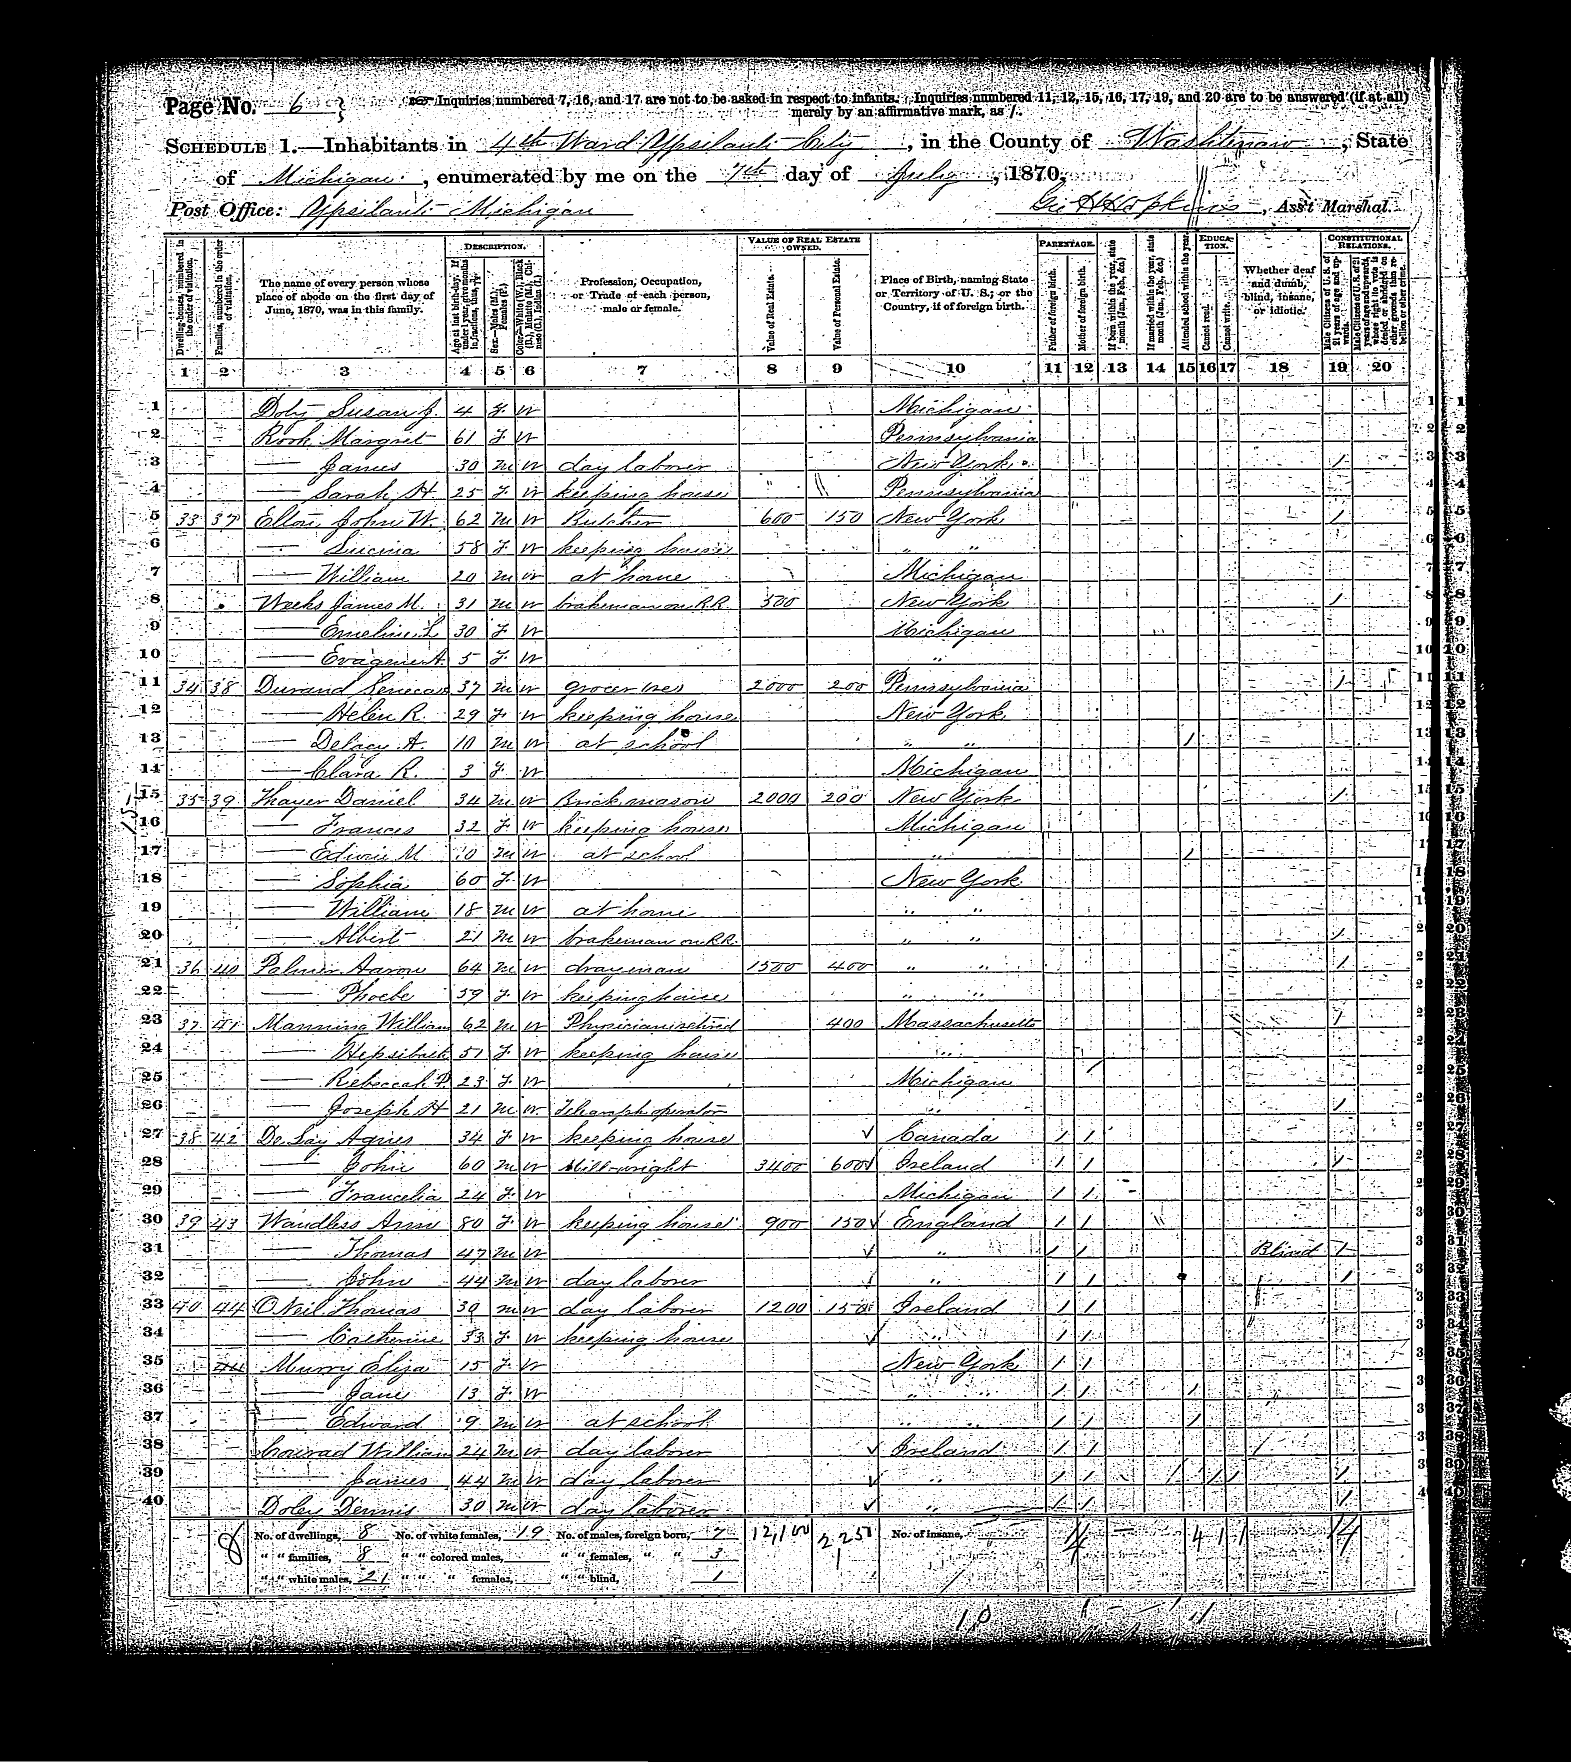 Page No. 6
Inquiries numbered 7, 16, and 17 are not to be asked in respect to infants. Inquiries numbered 11, 12, 15, 16, 17, 19, and 20 are to be answered (if at all)
merely by an affirmative mark, as /.
SCHEDULE 1.—Inhabitants in 4th Ward Ypsilanti City, in the County of Washtenaw, State
of Michigan, enumerated by me on the 7th day of July, 1870.
Post Office: Ypsilanti Michigan Geo H Hopkins, Ass't Marshal.
DESCRIPTION. VALUE OF REAL ESTATE OWNED. PARENTAGE. EDUCATION. CONSTITUTIONAL RELATIONS.
Dwelling-houses, numbered in the order of visitation.
Families, numbered in the order of visitation.
The name of every person whose place of abode on the first day of June, 1870, was in this family.
Age at last birth-day. If under 1 year, give months in fractions, thus, 3/12.
Sex.—Males (M.), Females (F.)
Color.—White (W.), Black (B.), Mulatto (M.), Chinese (C.), Indian (I.)
Profession, Occupation, or Trade of each person, male or female.
Value of Real Estate.
Value of Personal Estate.
Place of Birth, naming State or Territory of U. S.; or the Country, if of foreign birth.
Father of foreign birth.
Mother of foreign birth.
If born within the year, state month (Jan., Feb., &c.)
If married within the year, state month (Jan., Feb., &c.)
Attended school within the year.
Cannot read.
Cannot write.
Whether deaf and dumb, blind, insane, or idiotic.
Male Citizens of U. S. of 21 years of age and upwards.
Male Citizens of U. S. of 21 years of age and upwards, whose right to vote is denied or abridged on other grounds than rebellion or other crime.
1 2 3 4 5 6 7 8 9 10 11 12 13 14 15 16 17 18 19 20
1 Doty Susan J. 4 F W Michigan 1
2 Rook Margret 61 F W Pennsylvania 2
3 — James 30 M W day laborer New York / 3
4 — Sarah H. 25 F W keeping house Pennsylvania 4
5 33 37 Elton John W. 62 M W Butcher 600 150 New York / 5
6 — 58 F W keeping house " " 6
7 — William 20 M W at home Michigan 7
8 Weeks James M. 31 M W brakeman on R.R. 500 New York / 8
9 — Emeline L 30 F W Michigan 9
10 — A. 5 F W " 10
11 34 38 Durand 37 M W grocer 2000 200 Pennsylvania / 11
12 — Helen R. 29 F W keeping house New York 12
13 — Delacy A. 10 M W at school " " / 13
14 — Clara R. 3 F W Michigan 14
15 35 39 Thayer Daniel 34 M W Brick mason 2000 200 New York / 15
16 — Frances 32 F W keeping house Michigan 16
17 — Edwin M 10 M W at school " / 17
18 — Sophia 60 F W New York 18
19 — William 18 M W at home " " 19
20 — Albert 21 M W brakeman on R.R. " " / 20
21 36 40 Palmer Aaron 64 M W drayman 1500 400 " " / 21
22 — Phoebe 59 F W keeping house " " 22
23 37 41 Manning William 62 M W Physician retired 400 Massachusetts / 23
24 — Hepsibah 51 F W keeping house " 24
25 — Rebeccah P. 23 F W Michigan 25
26 — Joseph H 21 M W Telegraph operator " / 26
27 38 42 De Lay Agnes 34 F W keeping house Canada / / 27
28 — John 60 M W Mill-wright 3400 600 Ireland / / / 28
29 — Francelia 24 F W Michigan / / 29
30 39 43 Wandless Ann 80 F W keeping house 900 150 England / / 30
31 — Thomas 47 M W " / / Blind / 31
32 — John 44 M W day laborer " / / / 32
33 40 44 O'Neil Thomas 39 M W day laborer 1200 150 Ireland / / 33
34 — Catherine 33 F W keeping house " / / 34
35 Murry Eliza 15 F W New York / / 35
36 — Jane 13 F W " " / / / 36
37 — Edward 9 M W at school " " / / / 37
38 Conrad William 24 M W day laborer Ireland / / 38
39 — James 44 M W day laborer " / / / / / 39
40 Doley Dennis 30 M W day laborer " / / / 40
8 No. of dwellings, 8 No. of white females, 19 No. of males, foreign born, 7 12,100 2250 No. of insane, 14 4 1 1 14
" " families, 8 " " colored males, " " females, " " 3
" " white males, 21 " " " females, " " blind, 1